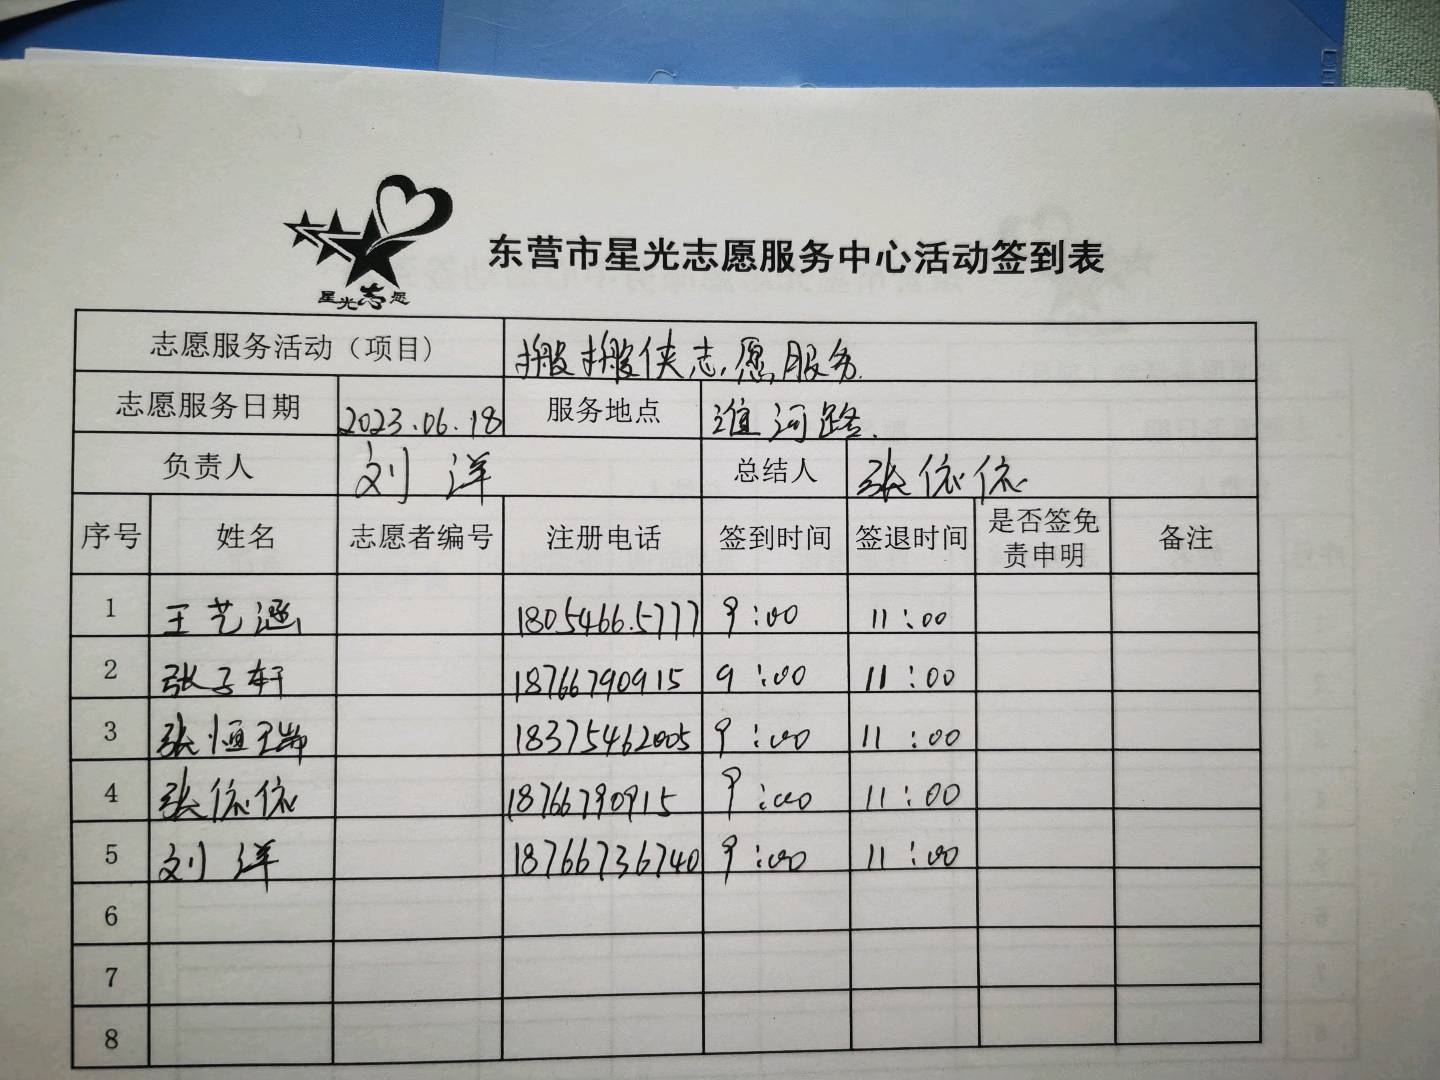 星光志愿
东营市星光志愿服务中心活动签到表
志愿服务活动（项目） 搬搬侠志愿服务
志愿服务日期 2023.06.18 服务地点 淮河路
负责人 刘洋 总结人 张依依
序号 姓名 志愿者编号 注册电话 签到时间 签退时间 是否签免责申明 备注
1 王艺涵 18054665777 9:00 11:00
2 张子轩 18766790915 9:00 11:00
3 张恒瑞 18375462005 9:00 11:00
4 张依依 18766790915 9:00 11:00
5 刘洋 18766736740 9:00 11:00
6
7
8